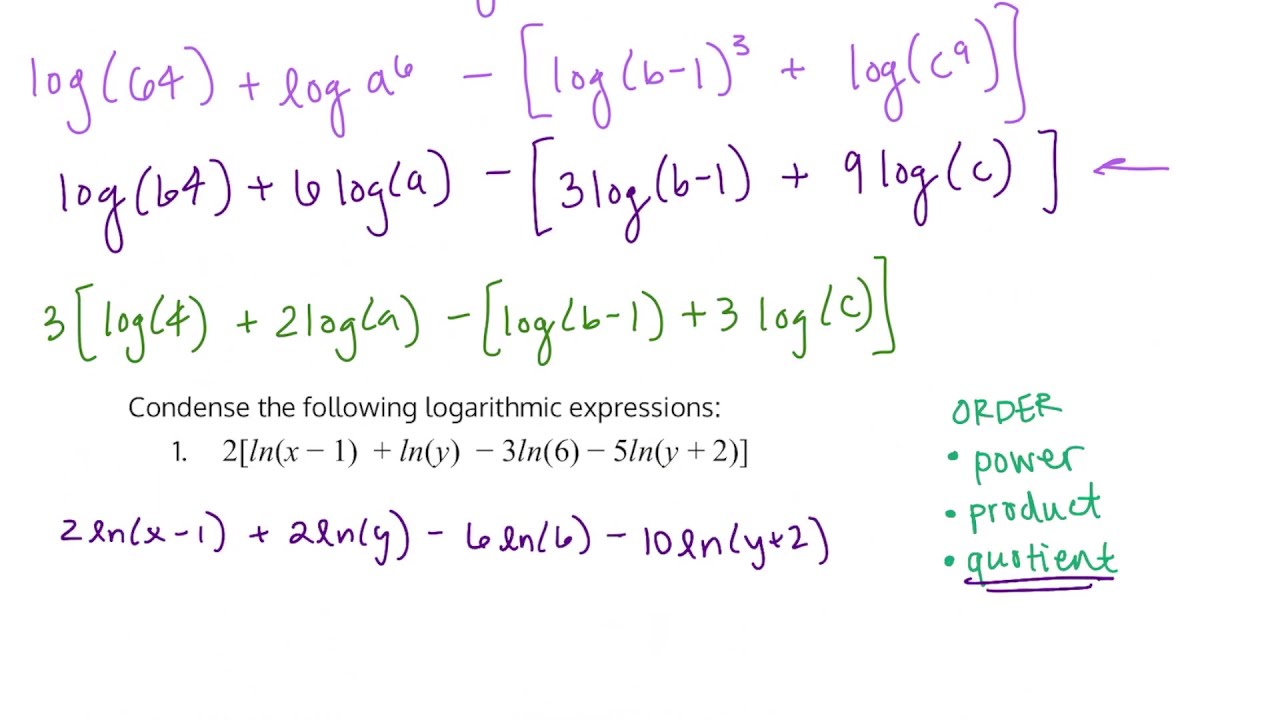 log(64) + log a⁶ - [log(b-1)³ + log(c⁹)]
log(64) + 6 log(a) - [3log(b-1) + 9 log(c)] ←
3[log(4) + 2log(a) - [log(b-1) + 3 log(c)]
Condense the following logarithmic expressions:
1. 2[ln(x − 1) + ln(y) − 3ln(6) − 5ln(y + 2)]
2 ln(x-1) + 2ln(y) - 6 ln(6) - 10 ln(y+2)
ORDER
• power
• product
• quotient